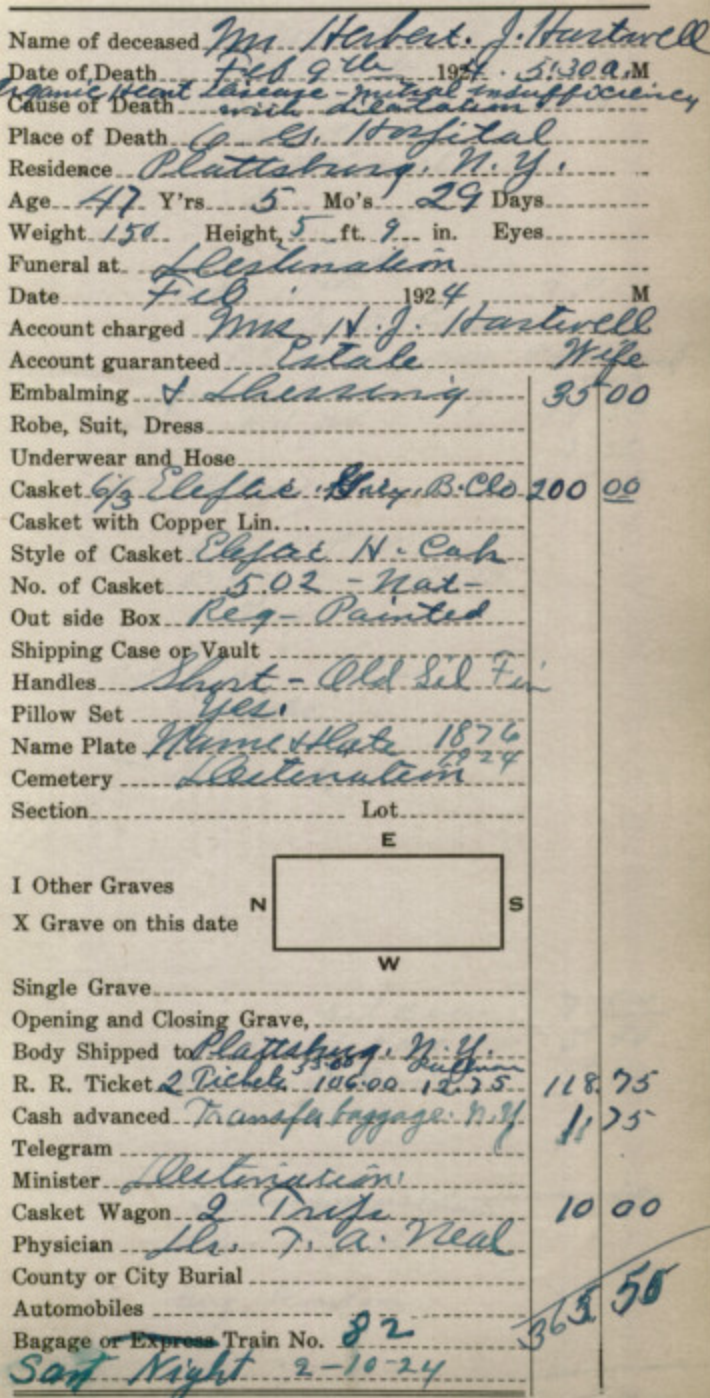 Name of deceased Mr Herbert. J. Hartwell
Date of Death Feb 9th 1924 . 5:30 a. M
Organic Heart Disease - mitral insufficiency
Cause of Death with dilatation
Place of Death G. Hospital
Residence Plattsburg, N.Y.
Age 47 Y'rs 5 Mo's 29 Days
Weight 150 Height, 5 ft. 9 in. Eyes
Funeral at Destination
Date Feb 1924 M
Account charged Mrs H. J. Hartwell
Account guaranteed Estate Wife
Embalming & Dressing 35 00
Robe, Suit, Dress
Underwear and Hose
Casket 6/3 Grey. B. Clo 200 00
Casket with Copper Lin.
Style of Casket
No. of Casket 502 - Nat -
Out side Box Reg - Painted
Shipping Case or Vault
Handles Short - Old Sil Fin
Pillow Set Yes.
Name Plate Name & Date 1876
1924
Cemetery Destination
Section Lot
E
I Other Graves
N S
X Grave on this date
W
Single Grave
Opening and Closing Grave,
Body Shipped to Plattsburg. N.Y.
Pullman
R. R. Ticket 2 Tickets 106.00 12.75 118.75
Cash advanced Transfer baggage. N.Y 1 75
Telegram
Minister Destination
Casket Wagon 2 Trips 10 00
Physician Dr. T. A. Neal
County or City Burial
Automobiles
365 50
Bagage or Express Train No. 82
Night 2-10-24